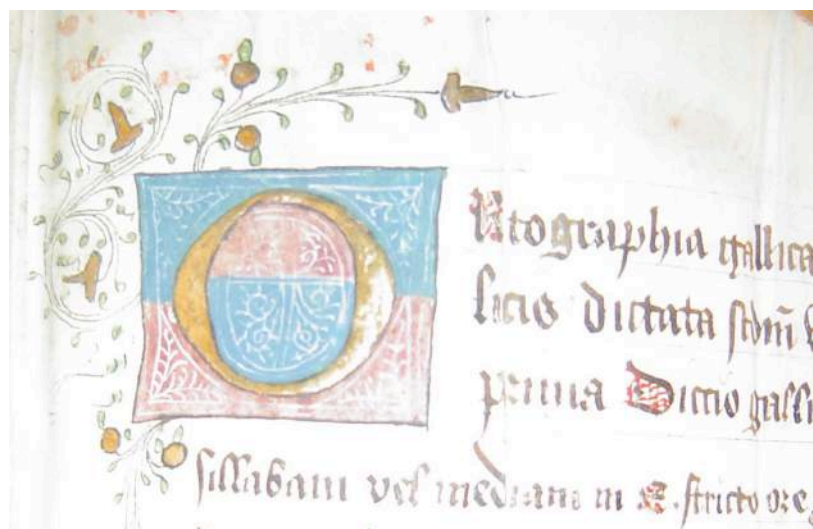 ORtographia gallica
dictata scdm̄
prima Diccio
sillabam vel mediam in E. stricto ore